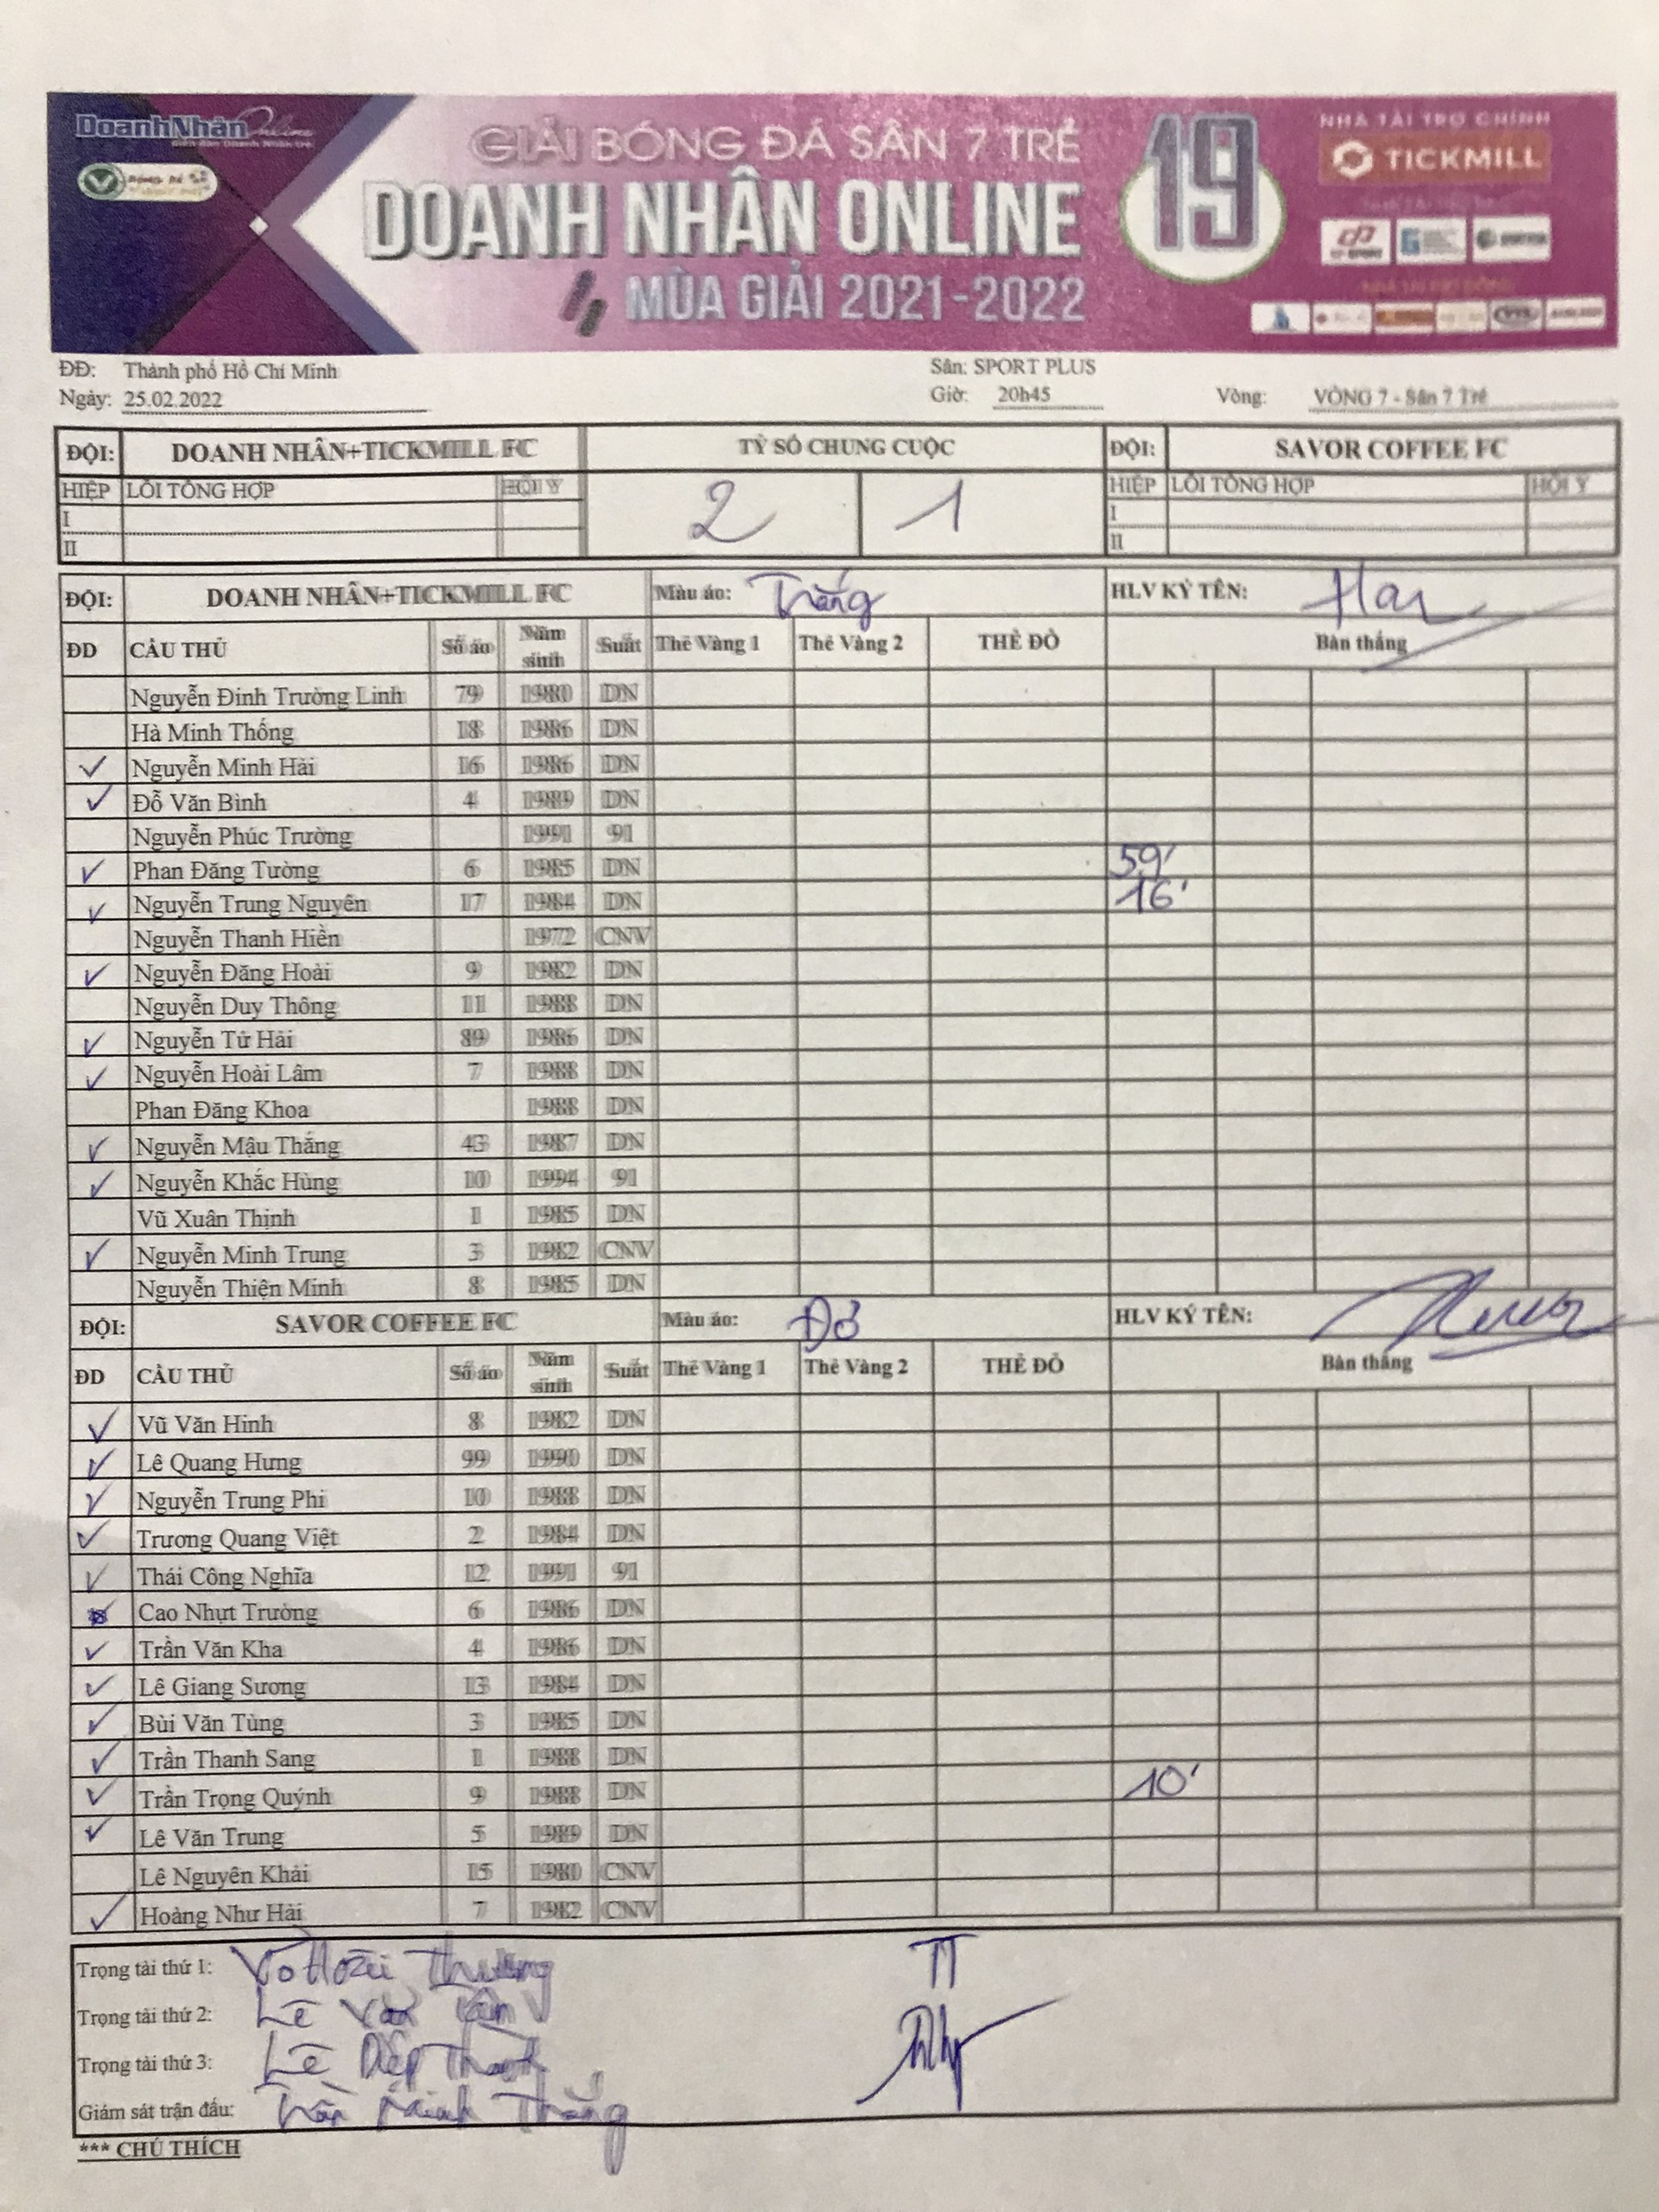 DoanhNhân Online
GIẢI BÓNG ĐÁ SÂN 7 TRẺ
DOANH NHÂN ONLINE
MÙA GIẢI 2021-2022
19
NHÀ TÀI TRỢ CHÍNH
TICKMILL
ĐĐ: Thành phố Hồ Chí Minh Sân: SPORT PLUS
Ngày: 25.02.2022 Giờ: 20h45 Vòng: VÒNG 7 - Sân 7 Trẻ
ĐỘI: DOANH NHÂN+TICKMILL FC TỶ SỐ CHUNG CUỘC ĐỘI: SAVOR COFFEE FC
HIỆP LỖI TỔNG HỢP HỘI Ý 2 1 HIỆP LỖI TỔNG HỢP HỘI Ý
I I
II II
ĐỘI: DOANH NHÂN+TICKMILL FC Màu áo: Trắng HLV KÝ TÊN:
ĐD CẦU THỦ Số áo Năm sinh Suất Thẻ Vàng 1 Thẻ Vàng 2 THẺ ĐỎ Bàn thắng
Nguyễn Đình Trường Linh 79 1980 DN
Hà Minh Thống 18 1986 DN
✓ Nguyễn Minh Hải 16 1986 DN
✓ Đỗ Văn Bình 4 1989 DN
Nguyễn Phúc Trường 1991 91
✓ Phan Đăng Tường 6 1985 DN 59'
✓ Nguyễn Trung Nguyên 17 1984 DN 16'
Nguyễn Thanh Hiền 1972 CNV
✓ Nguyễn Đăng Hoài 9 1982 DN
Nguyễn Duy Thông 11 1988 DN
✓ Nguyễn Tử Hải 89 1986 DN
✓ Nguyễn Hoài Lâm 7 1988 DN
Phan Đăng Khoa 1988 DN
✓ Nguyễn Mậu Thắng 43 1987 DN
✓ Nguyễn Khắc Hùng 10 1994 91
Vũ Xuân Thịnh 1 1985 DN
✓ Nguyễn Minh Trung 3 1982 CNV
Nguyễn Thiện Minh 8 1985 DN
ĐỘI: SAVOR COFFEE FC Màu áo: Đỏ HLV KÝ TÊN:
ĐD CẦU THỦ Số áo Năm sinh Suất Thẻ Vàng 1 Thẻ Vàng 2 THẺ ĐỎ Bàn thắng
✓ Vũ Văn Hinh 8 1982 DN
✓ Lê Quang Hưng 99 1990 DN
✓ Nguyễn Trung Phi 10 1988 DN
✓ Trương Quang Việt 2 1984 DN
✓ Thái Công Nghĩa 12 1991 91
Cao Nhựt Trường 6 1986 DN
✓ Trần Văn Kha 4 1986 DN
✓ Lê Giang Sương 13 1984 DN
✓ Bùi Văn Tùng 3 1985 DN
✓ Trần Thanh Sang 1 1988 DN
✓ Trần Trọng Quýnh 9 1988 DN 10'
✓ Lê Văn Trung 5 1989 DN
Lê Nguyên Khải 15 1980 CNV
✓ Hoàng Như Hải 7 1982 CNV
Trọng tài thứ 1: Võ Hoài Thương TT
Trọng tài thứ 2: Lê Văn Tâm
Trọng tài thứ 3: Lê Diệp Thanh
Giám sát trận đấu: Trần Minh Thắng
*** CHÚ THÍCH